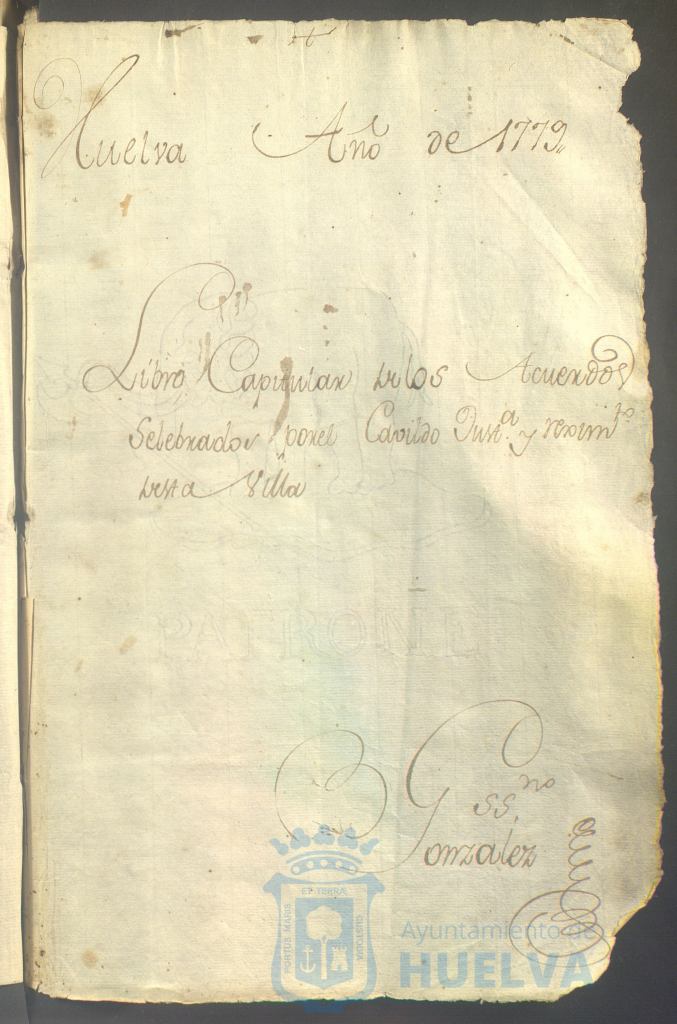 Huelva Año de 1779
Libro Capitular de los Acuerdos
Selebrados por el Cavildo Just.ª y reximto
desta Villa
SS.no
Gonzalez
PATRONE
ET TERRÆ
PORTUS MARIS
CUSTODIA
Ayuntamiento de
HUELVA